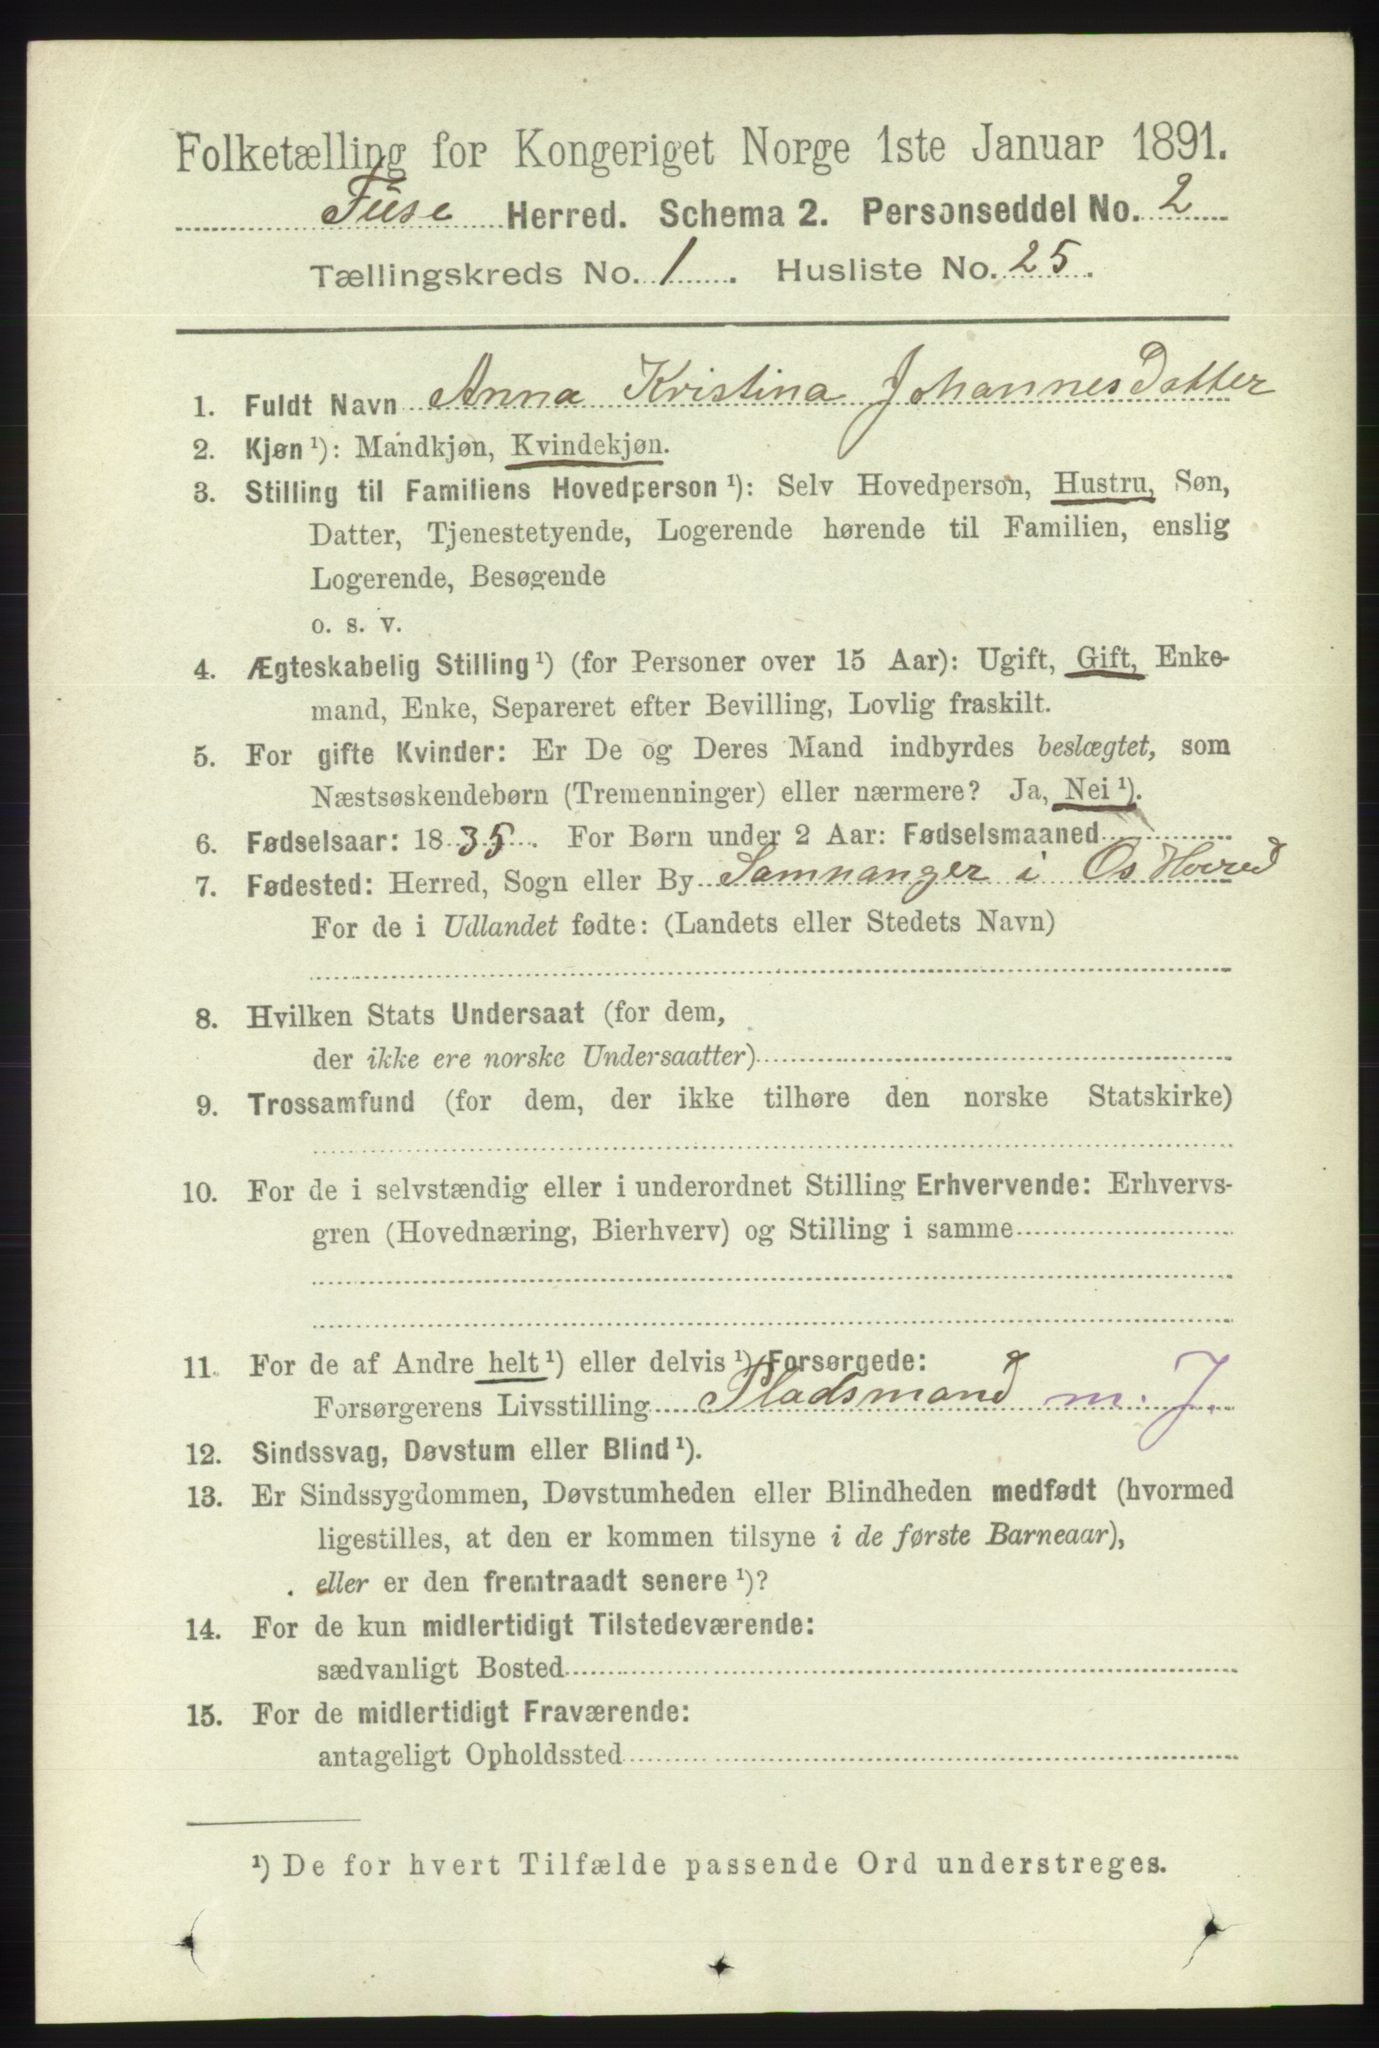 Folketælling for Kongeriget Norge 1ste Januar 1891.
Fuse Herred. Schema 2. Personseddel No. 2
Tællingskreds No. 1. Husliste No. 25.
1. Fuldt Navn Anna Kristina Johannesdatter
2. Kjøn¹): Mandkjøn, Kvindekjøn.
3. Stilling til Familiens Hovedperson¹): Selv Hovedperson, Hustru, Søn,
Datter, Tjenestetyende, Logerende hørende til Familien, enslig
Logerende, Besøgende
o. s. v.
4. Ægteskabelig Stilling¹) (for Personer over 15 Aar): Ugift, Gift, Enke-
mand, Enke, Separeret efter Bevilling, Lovlig fraskilt.
5. For gifte Kvinder: Er De og Deres Mand indbyrdes beslægtet, som
Næstsøskendebørn (Tremenninger) eller nærmere? Ja, Nei¹).
6. Fødselsaar: 1835. For Børn under 2 Aar: Fødselsmaaned
7. Fødested: Herred, Sogn eller By Samnanger i Os Herred
For de i Udlandet fødte: (Landets eller Stedets Navn)
8. Hvilken Stats Undersaat (for dem,
der ikke ere norske Undersaatter)
9. Trossamfund (for dem, der ikke tilhøre den norske Statskirke)
10. For de i selvstændig eller i underordnet Stilling Erhvervende: Erhvervs-
gren (Hovednæring, Bierhverv) og Stilling i samme
11. For de af Andre helt¹) eller delvis¹) Forsørgede:
Forsørgerens Livsstilling Pladsmand m. J.
12. Sindssvag, Døvstum eller Blind¹).
13. Er Sindssygdommen, Døvstumheden eller Blindheden medfødt (hvormed
ligestilles, at den er kommen tilsyne i de første Barneaar),
eller er den fremtraadt senere¹)?
14. For de kun midlertidigt Tilstedeværende:
sædvanligt Bosted
15. For de midlertidigt Fraværende:
antageligt Opholdssted
¹) De for hvert Tilfælde passende Ord understreges.